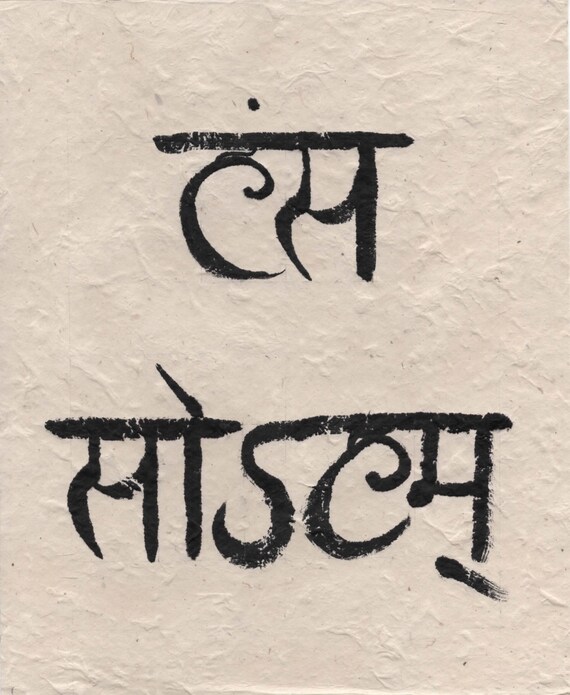 हंस
सोऽहम्